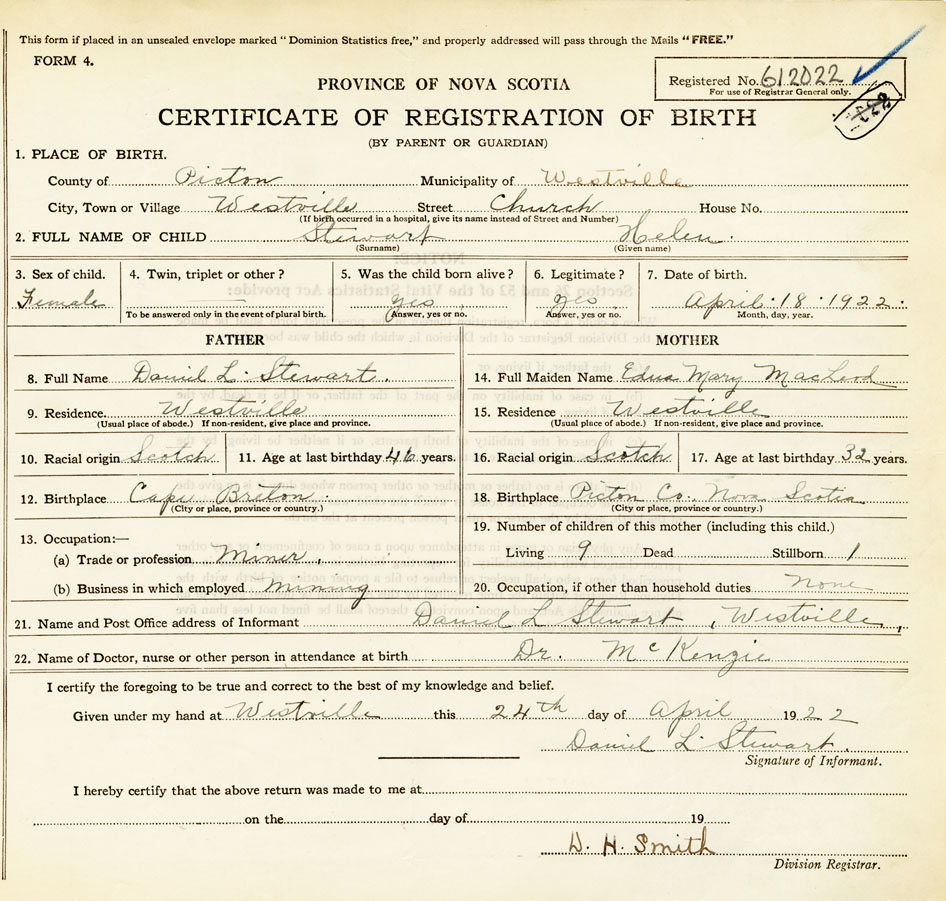 This form if placed in an unsealed envelope marked "Dominion Statistics free," and properly addressed will pass through the Mails "FREE."
FORM 4.
Registered No. 612022
For use of Registrar General only.
PROVINCE OF NOVA SCOTIA
CERTIFICATE OF REGISTRATION OF BIRTH
(BY PARENT OR GUARDIAN)
1. PLACE OF BIRTH.
County of Picton Municipality of Westville
City, Town or Village Westville Street Church House No.
(If birth occurred in a hospital, give its name instead of Street and Number)
2. FULL NAME OF CHILD Stewart Helen.
(Surname) (Given name)
3. Sex of child. 4. Twin, triplet or other? 5. Was the child born alive? 6. Legitimate? 7. Date of birth.
Female yes yes April. 18. 1922.
To be answered only in the event of plural birth. Answer, yes or no. Answer, yes or no. Month, day, year.
FATHER MOTHER
8. Full Name Daniel L. Stewart. 14. Full Maiden Name Edna Mary MacLeod
9. Residence. Westville 15. Residence Westville
(Usual place of abode.) If non-resident, give place and province. (Usual place of abode.) If non-resident, give place and province.
10. Racial origin Scotch 11. Age at last birthday years. 16. Racial origin Scotch 17. Age at last birthday 32 years.
12. Birthplace Cape Breton. 18. Birthplace Picton Co., Nova Scotia
(City or place, province or country.) (City or place, province or country.)
13. Occupation:— 19. Number of children of this mother (including this child.)
(a) Trade or profession Miner, Living 9 Dead Stillborn 1
(b) Business in which employed Mining 20. Occupation, if other than household duties None
21. Name and Post Office address of Informant Daniel L Stewart, Westville,
22. Name of Doctor, nurse or other person in attendance at birth Dr. McKenzie
I certify the foregoing to be true and correct to the best of my knowledge and belief.
Given under my hand at Westville this 24th day of April 1922
Daniel L. Stewart.
Signature of Informant.
I hereby certify that the above return was made to me at
on the day of 19
D. H. Smith
Division Registrar.